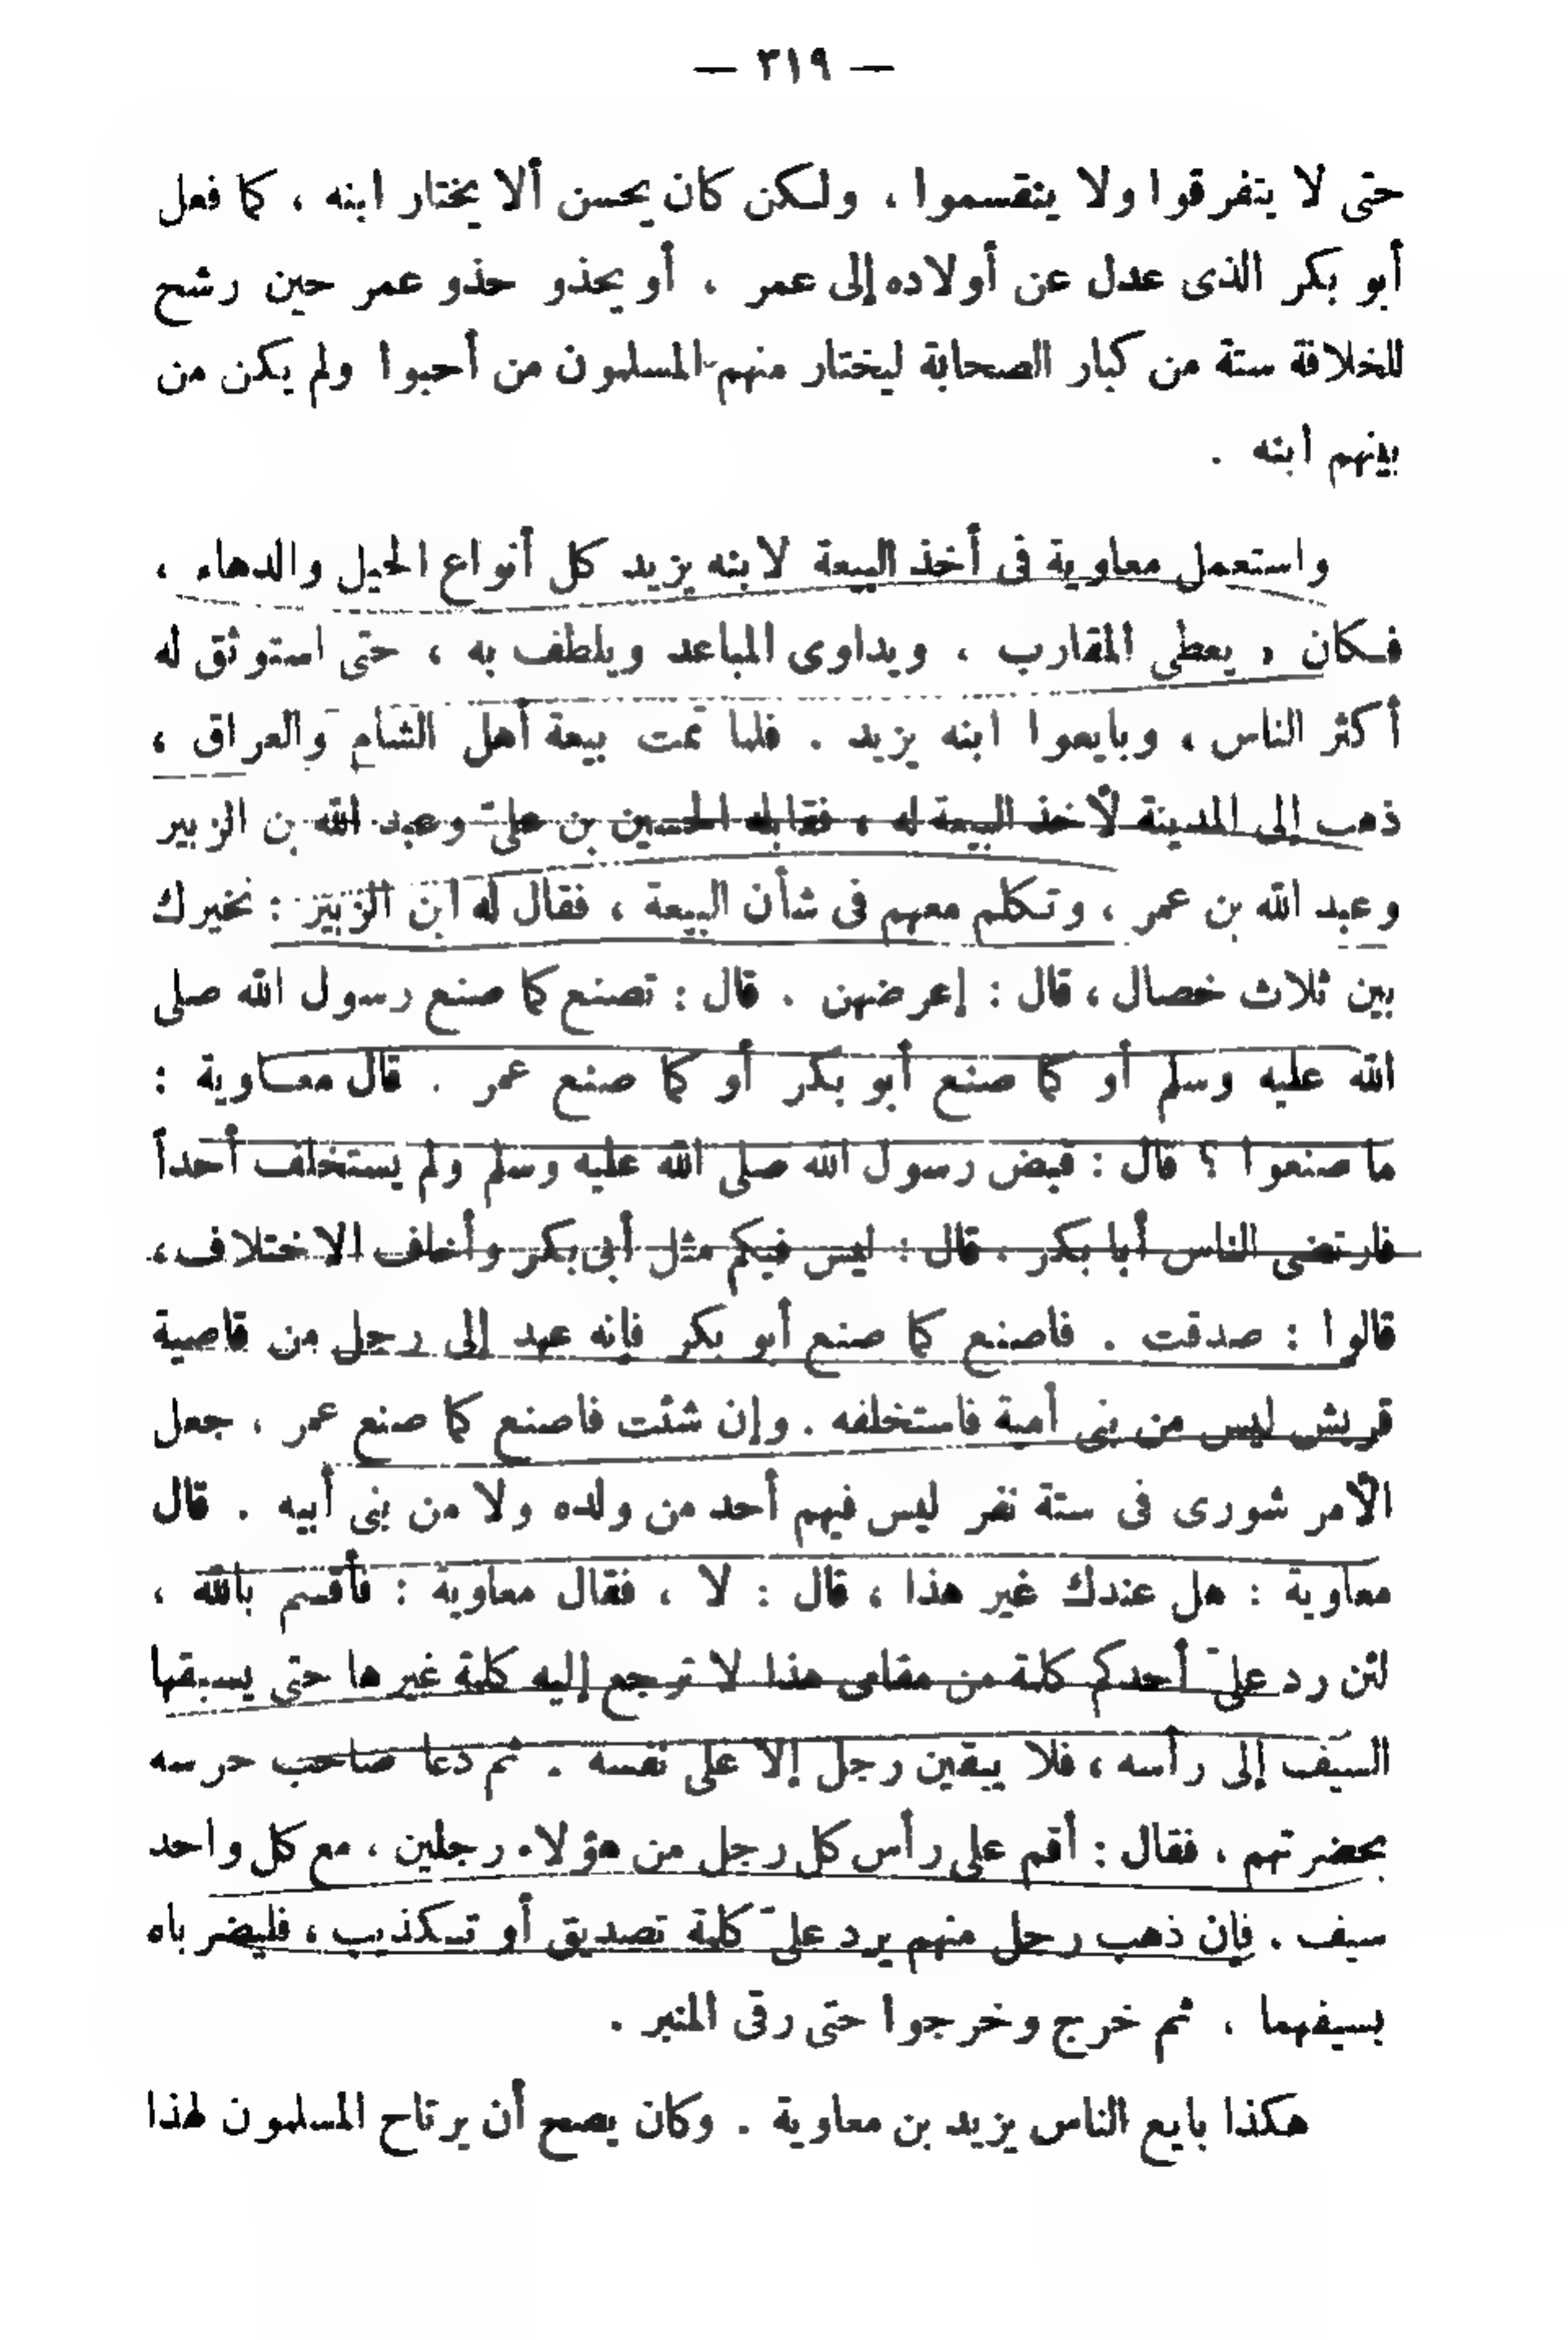 — ٣١٩ —
حتى لا يتفرقوا ولا ينقسموا ، ولكن كان يحسن ألا يختار ابنه ، كما فعل
أبو بكر الذى عدل عن أولاده إلى عمر ، أو يحذو حذو عمر حين رشح
للخلافة ستة من كبار الصحابة ليختار منهم المسلمون من أحبوا ولم يكن من
بينهم ابنه .
واستعمل معاوية فى أخذ البيعة لابنه يزيد كل أنواع الحيل والدهاء ،
فكان « يعطى المقارب ، ويداوى المباعد ويلطف به ، حتى استوثق له
أكثر الناس ، وبايعوا ابنه يزيد . فلما تمت بيعة أهل الشام والعراق ،
ذهب إلى المدينة لأخذ البيعة له ، فقابله الحسين بن على وعبد الله بن الزبير
وعبد الله بن عمر ، وتكلم معهم فى شأن البيعة ، فقال له ابن الزبير : نخيرك
بين ثلاث خصال ، قال : إعرضهن . قال : تصنع كما صنع رسول الله صلى
الله عليه وسلم أو كما صنع أبو بكر أو كما صنع عمر . قال معاوية :
ما صنعوا ؟ قال : قبض رسول الله صلى الله عليه وسلم ولم يستخلف أحداً
فارتضى الناس أبا بكر . قال : ليس فيكم مثل أبى بكر وأخاف الاختلاف ،
قالوا : صدقت . فاصنع كما صنع أبو بكر فإنه عهد إلى رجل من قاصية
قريش ليس من بنى أمية فاستخلفه . وإن شئت فاصنع كما صنع عمر ، جعل
الأمر شورى فى ستة نفر ليس فيهم أحد من ولده ولا من بنى أبيه . قال
معاوية : هل عندك غير هذا ، قال : لا ، فقال معاوية : فأقسم بالله ،
لئن رد علىّ أحدكم كلمة من مقامى هذا لا ترجع إليه كلمة غيرها حتى يسبقها
السيف إلى رأسه ، فلا يبقين رجل إلا على نفسه . ثم دعا صاحب حرسه
بحضرتهم ، فقال : أقم على رأس كل رجل من هؤلاء رجلين ، مع كل واحد
سيف . فإن ذهب رجل منهم يرد علىّ كلمة تصديق أو تكذيب ، فليضرباه
بسيفهما ، ثم خرج وخرجوا حتى رقى المنبر .
هكذا بايع الناس يزيد بن معاوية . وكان يصح أن يرتاح المسلمون لهذا